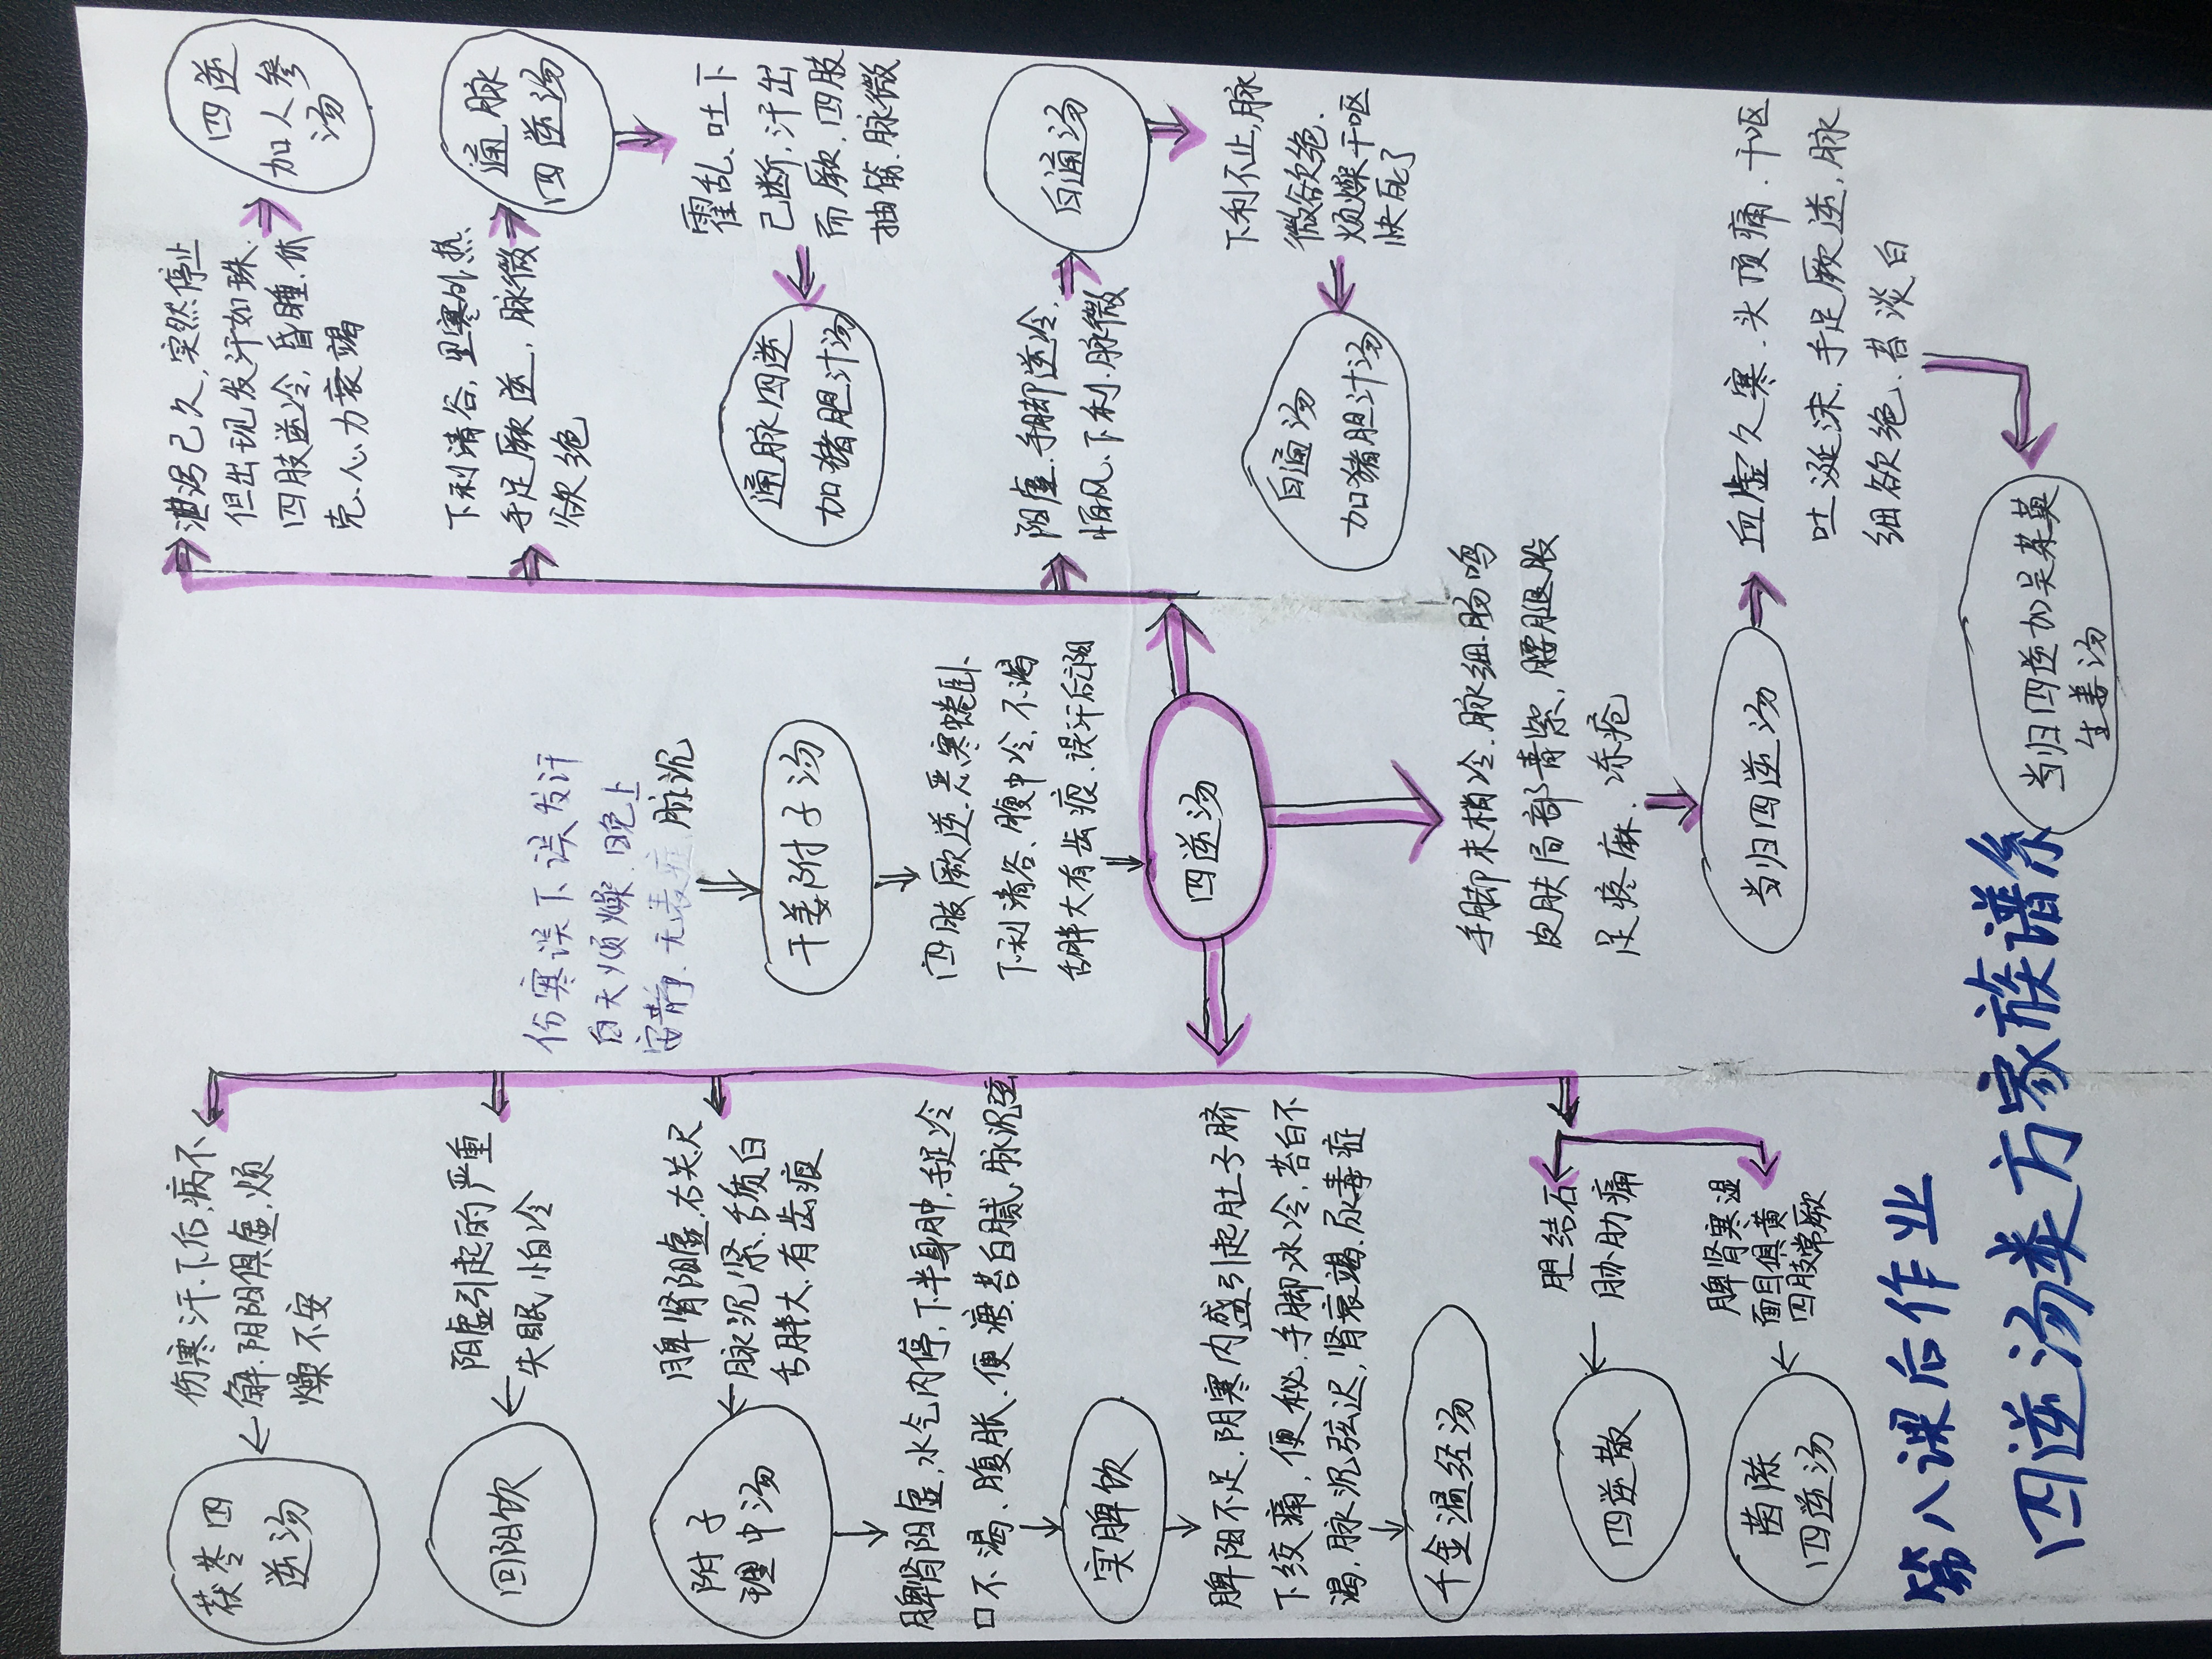 茯苓四
逆汤
伤寒汗.下后.病不
解.阴阳俱虚.烦
燥不安
回阳饮
阳虚引起的严重
失眠.怕冷
附子
理中汤
脾肾阳虚.右关尺
脉沉紧.舌质白
舌胖大.有齿痕
脾肾阳虚,水气内停,下半身肿,手足冷
口不渴、腹胀、便溏.苔白腻.脉沉弦
实脾饮
脾阳不足.阴寒内盛引起肚子脐
下绞痛,便秘.手脚冰冷,苔白不
渴,脉沉弦迟,肾衰竭.尿毒症
千金温经汤
胆结石
胁肋痛
四逆散
脾肾寒湿
面目俱黄
四肢常厥
茵陈
四逆汤
伤寒误下误发汗
白天烦燥.晚上
安静.无表症.脉沉
干姜附子汤
四肢厥逆.恶寒蜷卧
下利清谷、腹中冷,不渴
舌胖大有齿痕.误汗后亡阳
四逆汤
手脚末梢冷.脉细.肠鸣
皮肤局部青紫,腰腿股
足疼麻.冻疮
当归四逆汤
血虚久寒.头顶痛.干呕
吐涎沫.手足厥逆,脉
细欲绝.苔淡白
当归四逆加吴茱萸
生姜汤
泄泻已久,突然停止
但出现发汗如珠.
四肢逆冷,昏睡.休
克.心力衰竭
四逆
加人参
汤
下利清谷,里寒外热.
手足厥逆,脉微
欲绝
通脉
四逆汤
霍乱.吐下
已断,汗出
而厥.四肢
抽筋.脉微
通脉四逆
加猪胆汁汤
阳虚.手脚逆冷,
怕风.下利.脉微
白通汤
下利不止,脉
微欲绝、
烦燥干呕
快死了
白通汤
加猪胆汁汤
第八课后作业
四逆汤类方家族谱系